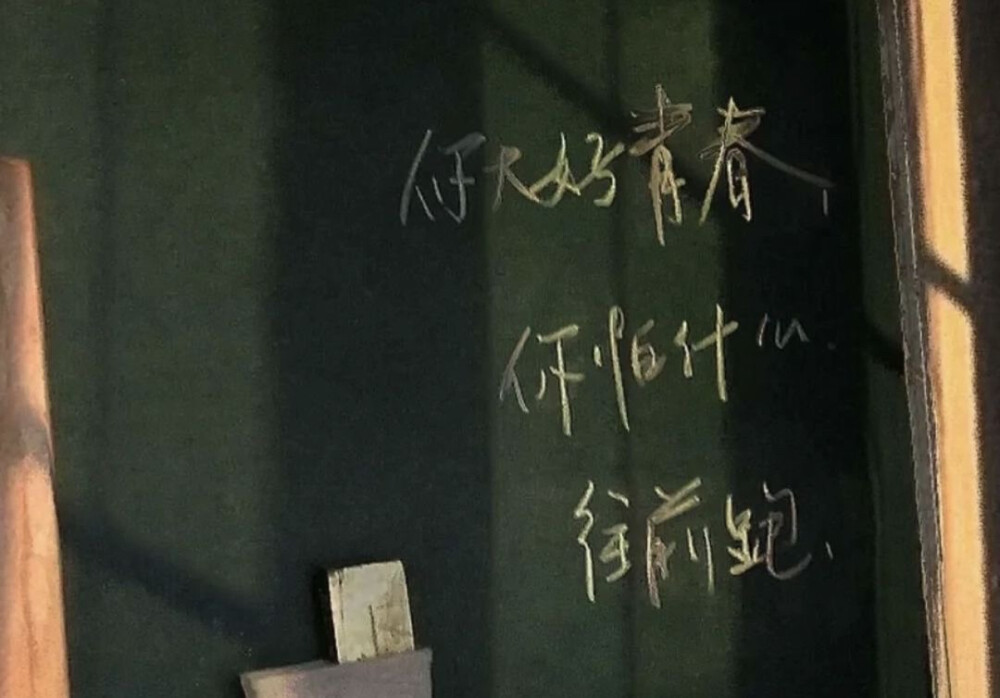 你大好青春,
你怕什么.
往前跑.